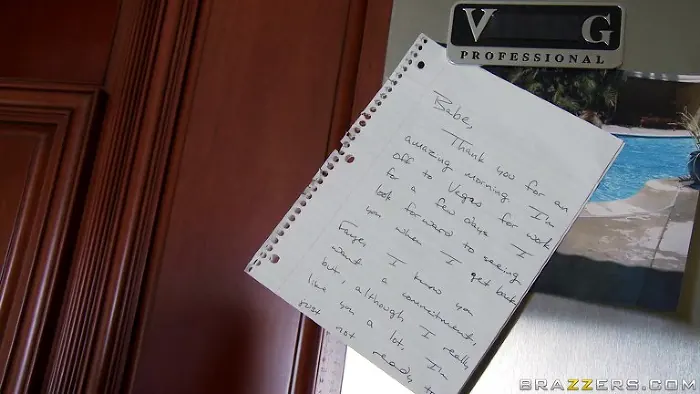 V G
PROFESSIONAL
Babe,
Thank you for an
amazing morning. I'm
off to Vegas for work
for a few days. I
look forward to seeing
you when I get back.
I know you
want a commitment,
but, although I really
like you a lot, I'm
just not ready to
BRAZZERS.COM